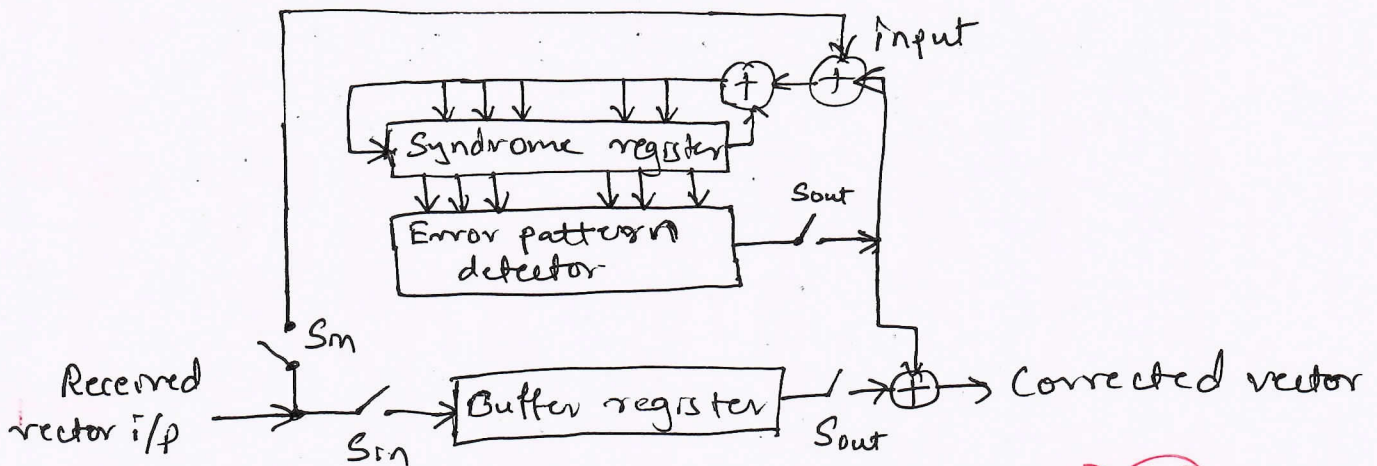 input
+ +
Syndrome register
Sout
Error pattern
detector
Sin
Received
vector i/p
Sin
Buffer register
Sout
+
Corrected vector